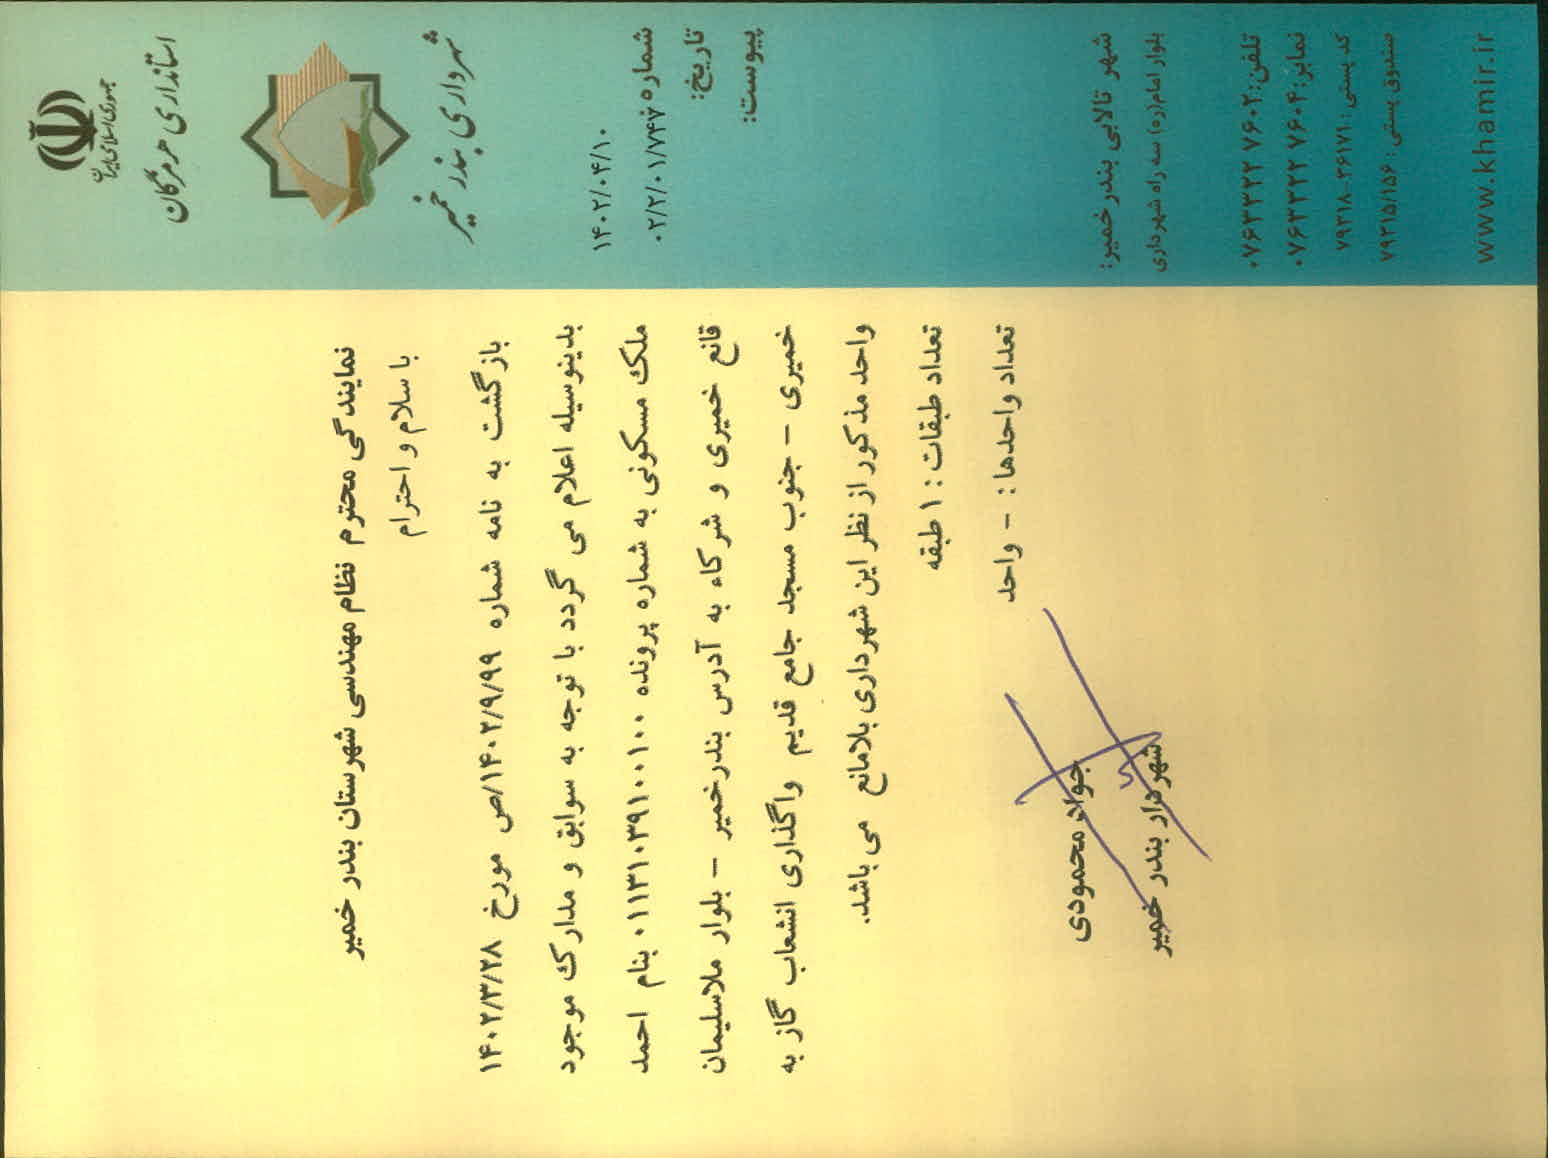 جمهوری اسلامی ایران
استانداری هرمزگان
شهرداری بندر خمیر
۱۴۰۲/۰۴/۱۰
شماره: ۰۲/۲/۰۱/۷۴۷
تاریخ:
پیوست:
نمایندگی محترم نظام مهندسی شهرستان بندر خمیر
با سلام و احترام
بازگشت به نامه شماره ۱۴۰۲/۹/۹۹/ص مورخ ۱۴۰۲/۳/۲۸
بدینوسیله اعلام می گردد با توجه به سوابق و مدارک موجود
ملک مسکونی به شماره پرونده ۰۱۱۳۱۰۳۹۱۰۰۱۰۰ بنام احمد
قانع خمیری و شرکاء به آدرس بندرخمیر – بلوار ملاسلیمان
خمیری – جنوب مسجد جامع قدیم واگذاری انشعاب گاز به
واحد مذکور از نظر این شهرداری بلامانع می باشد.
تعداد طبقات : ۱ طبقه
تعداد واحدها : – واحد
جواد محمودی
شهردار بندر خمیر
شهر تالابی بندر خمیر:
بلوار امام(ره) سه راه شهرداری
تلفن: ۰۷۶۳۳۲۲ ۷۶۰۲
نمابر: ۰۷۶۳۳۲۲ ۷۶۰۴
کد پستی: ۷۹۳۱۸-۳۶۱۷۱
صندوق پستی: ۷۹۳۱۵/۱۵۶
www.khamir.ir